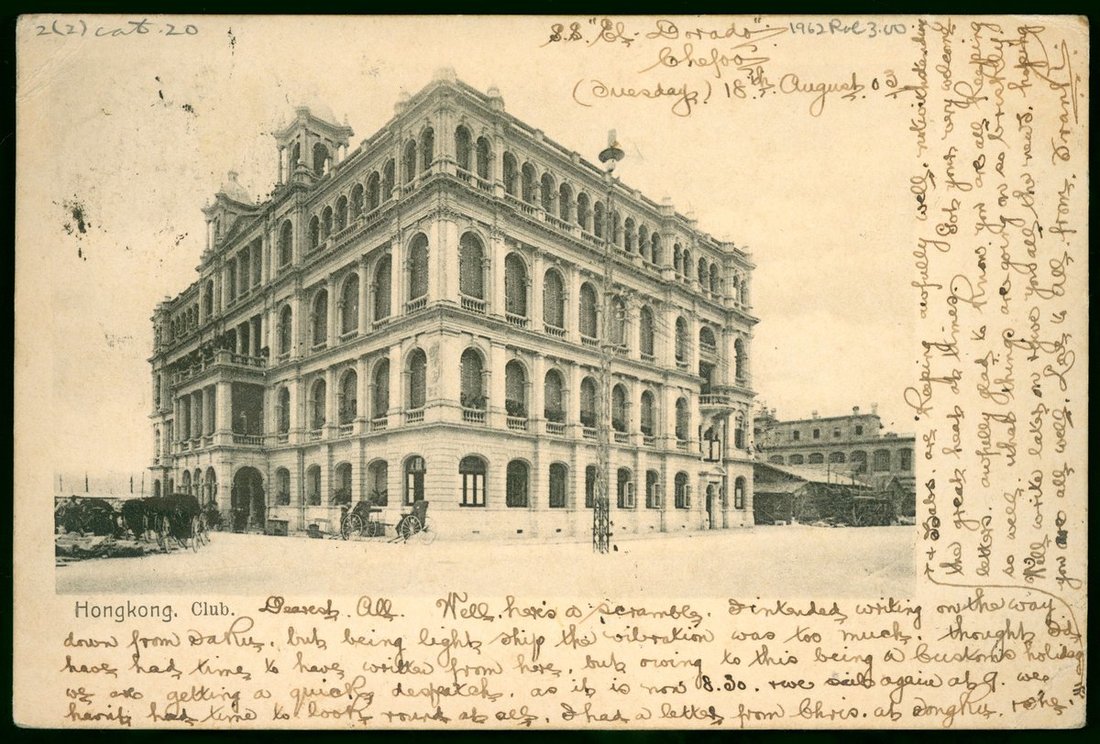 2(2) cat. 20
1962 Rol 3.00
S.S "El Dorado"
Chefoo
(Tuesday) 18th August 0
Hongkong. Club.
Dearest All. Well, here's a scramble. I intended writing on the way
down from Taku, but being light ship the vibration was too much, thought I'd
have had time to have written from here, but owing to this being a Customs holiday
we are getting a quick despatch, as it is now 8.30. & we sail again at 9. we
havn't had time to look round at all. I had a letter from Chris. at Tongku, & she
& Babs. are keeping awfully well, notwithstanding
the great heat at times. Got yours very welcome
letters. awfully glad to know you are all keeping
so well, & that things are going on so briskly.
Will write later on & give you all the news. hoping
you are all well. Love to All. from. Frank.